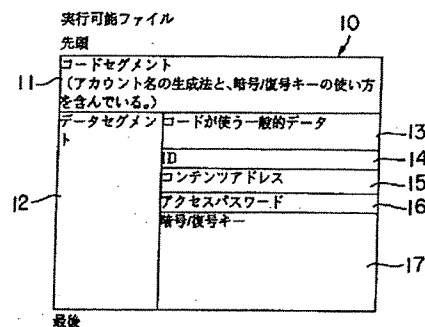 実行可能ファイル
先頭
10
11
コードセグメント
(アカウント名の生成法と、暗号/復号キーの使い方
を含んでいる。)
データセグメン
ト
コードが使う一般的データ
13
ID
14
コンテンツアドレス
15
12
アクセスパスワード
16
暗号/復号キー
17
最後